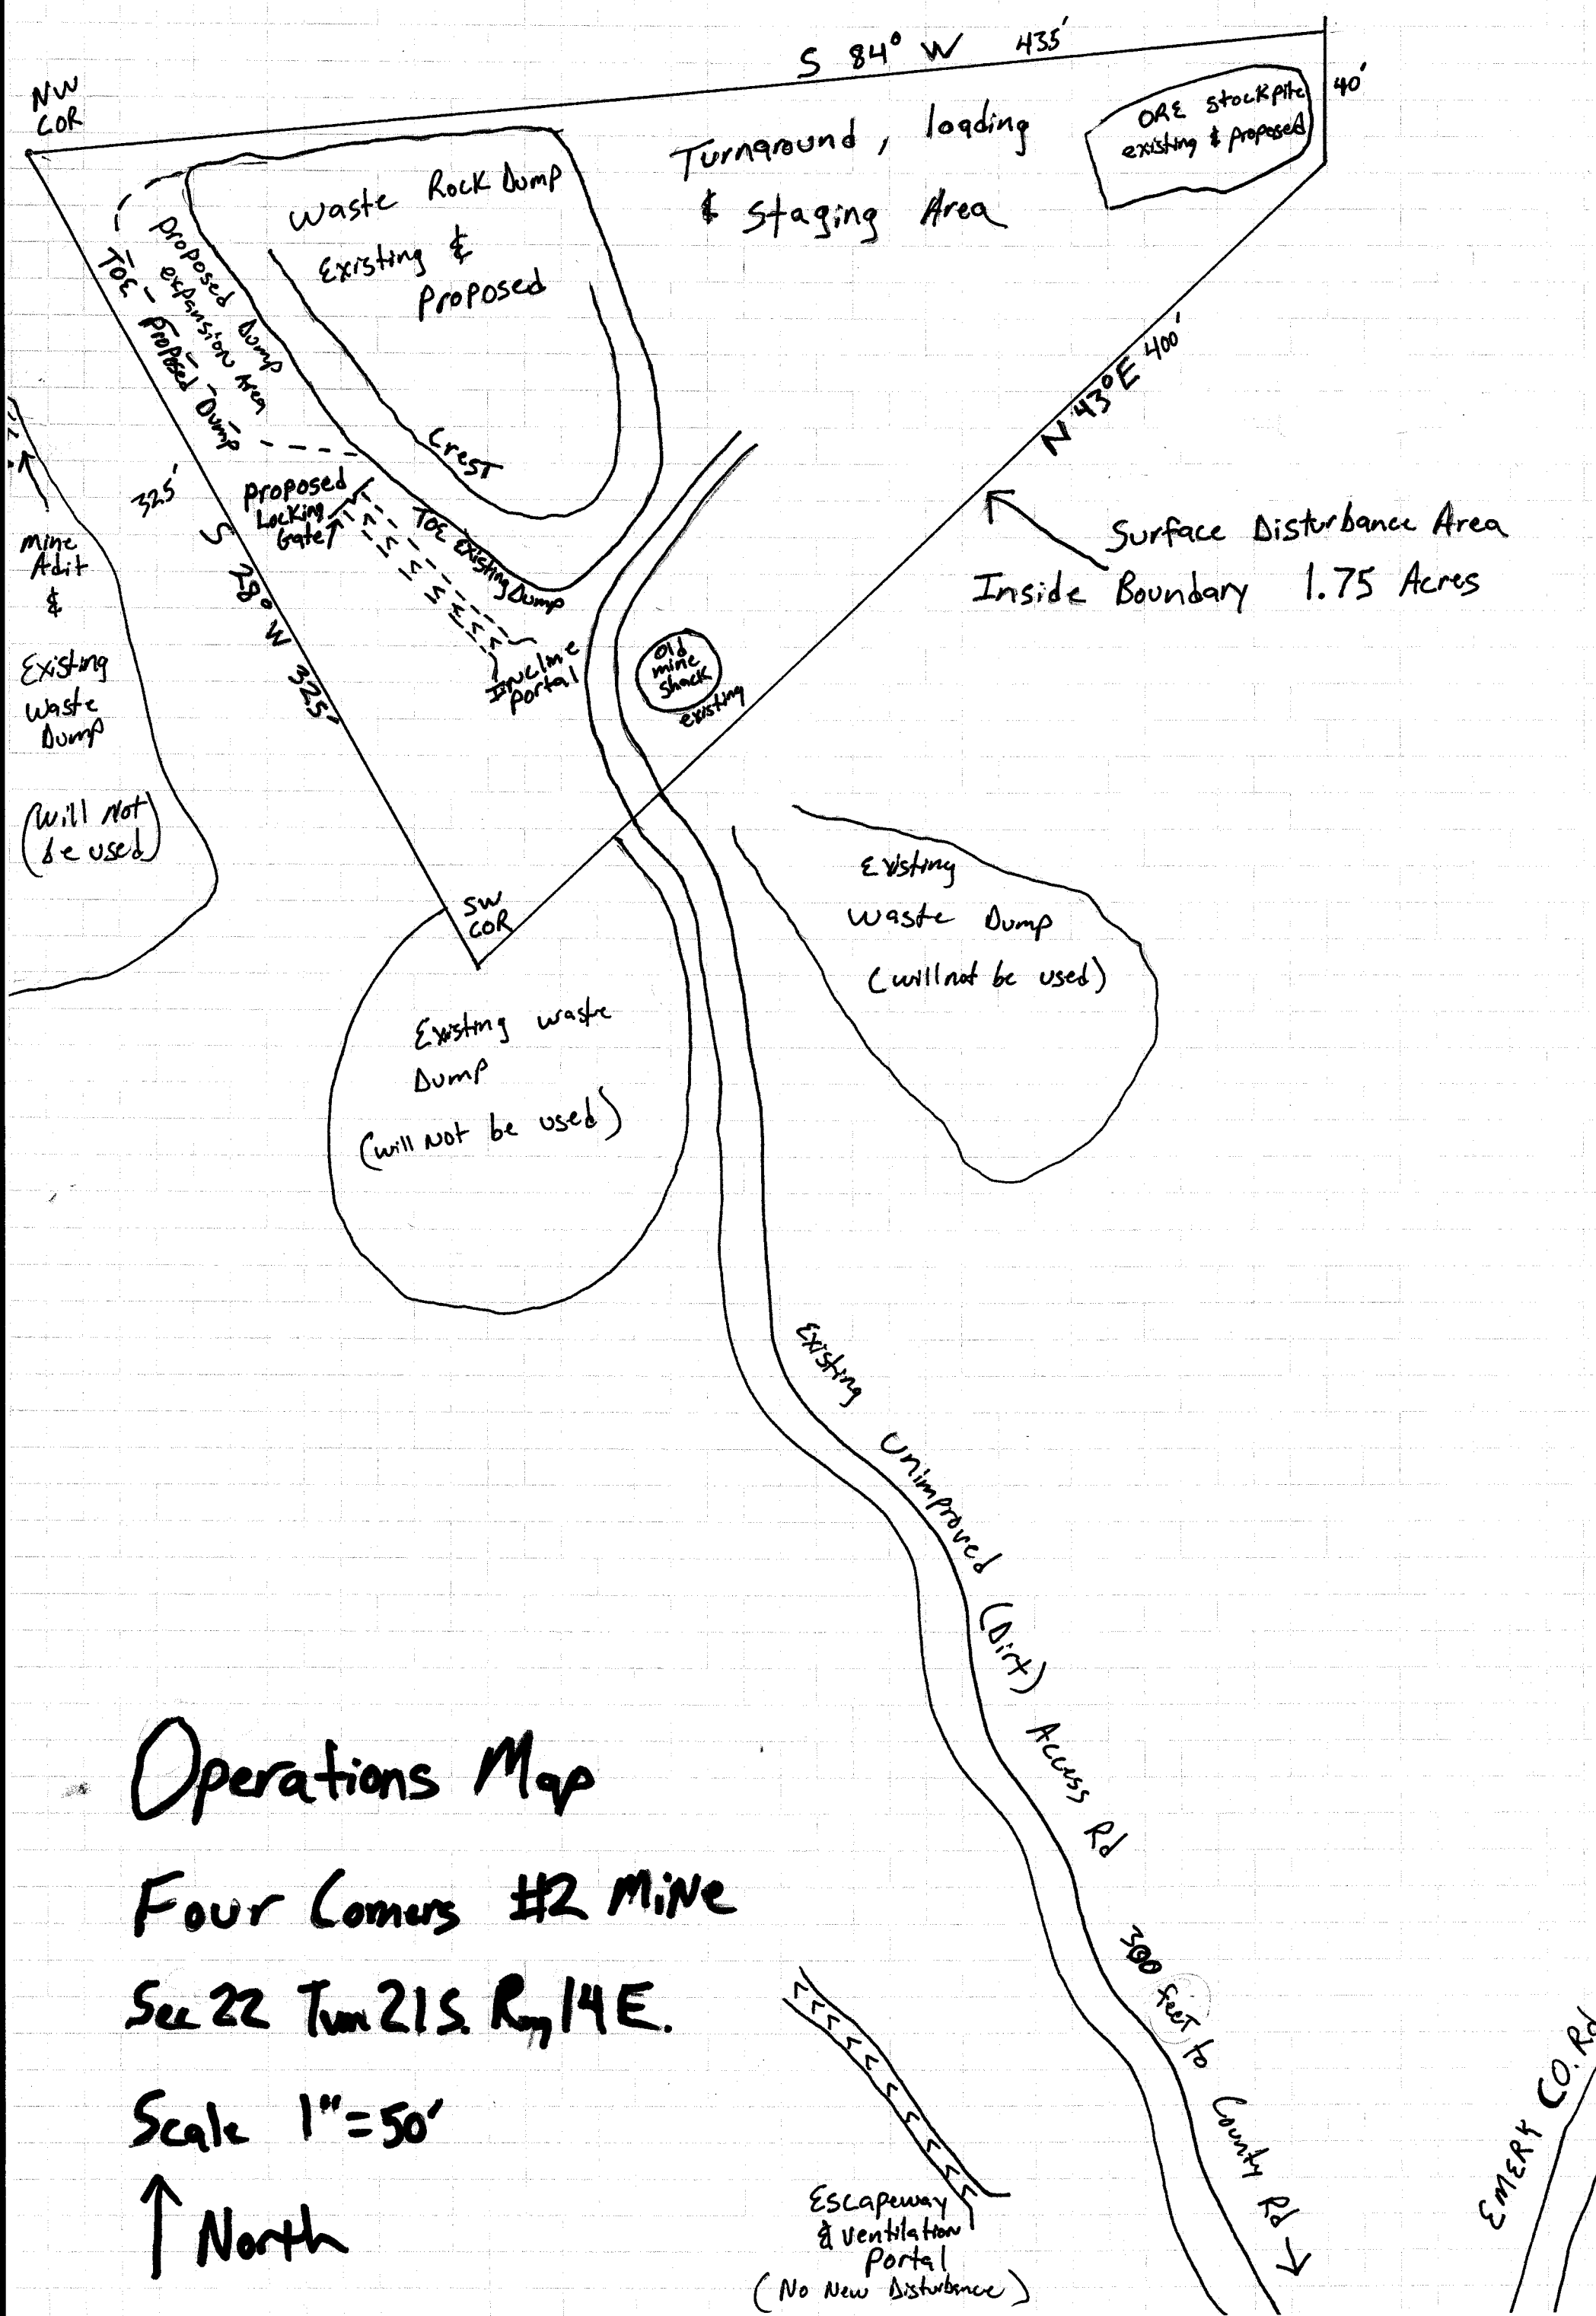 S 84° W 435'
NW
COR
40'
ORE Stockpile
existing & proposed
Turnaround, loading
& Staging Area
Waste Rock Dump
Existing &
Proposed
proposed Dump
expansion Area
TOE - Proposed Dump
Crest
N 43° E 400'
325'
S 28° W 325'
proposed
Locking
Gate
TOE Existing Dump
Incline
portal
Old
mine
shack
existing
Surface Disturbance Area
Inside Boundary 1.75 Acres
mine
Adit
&
Existing
Waste
Dump
(Will Not
be used)
SW
COR
Existing
Waste Dump
(will not be used)
Existing Waste
Dump
(will Not be used)
Existing Unimproved (Dirt) Access Rd
300 feet to County Rd
EMERY CO. Rd
Operations Map
Four Corners #2 Mine
Sec 22 Twn 21 S. Rng 14 E.
Scale 1"=50'
North
Escapeway
& ventilation
Portal
(No New Disturbance)